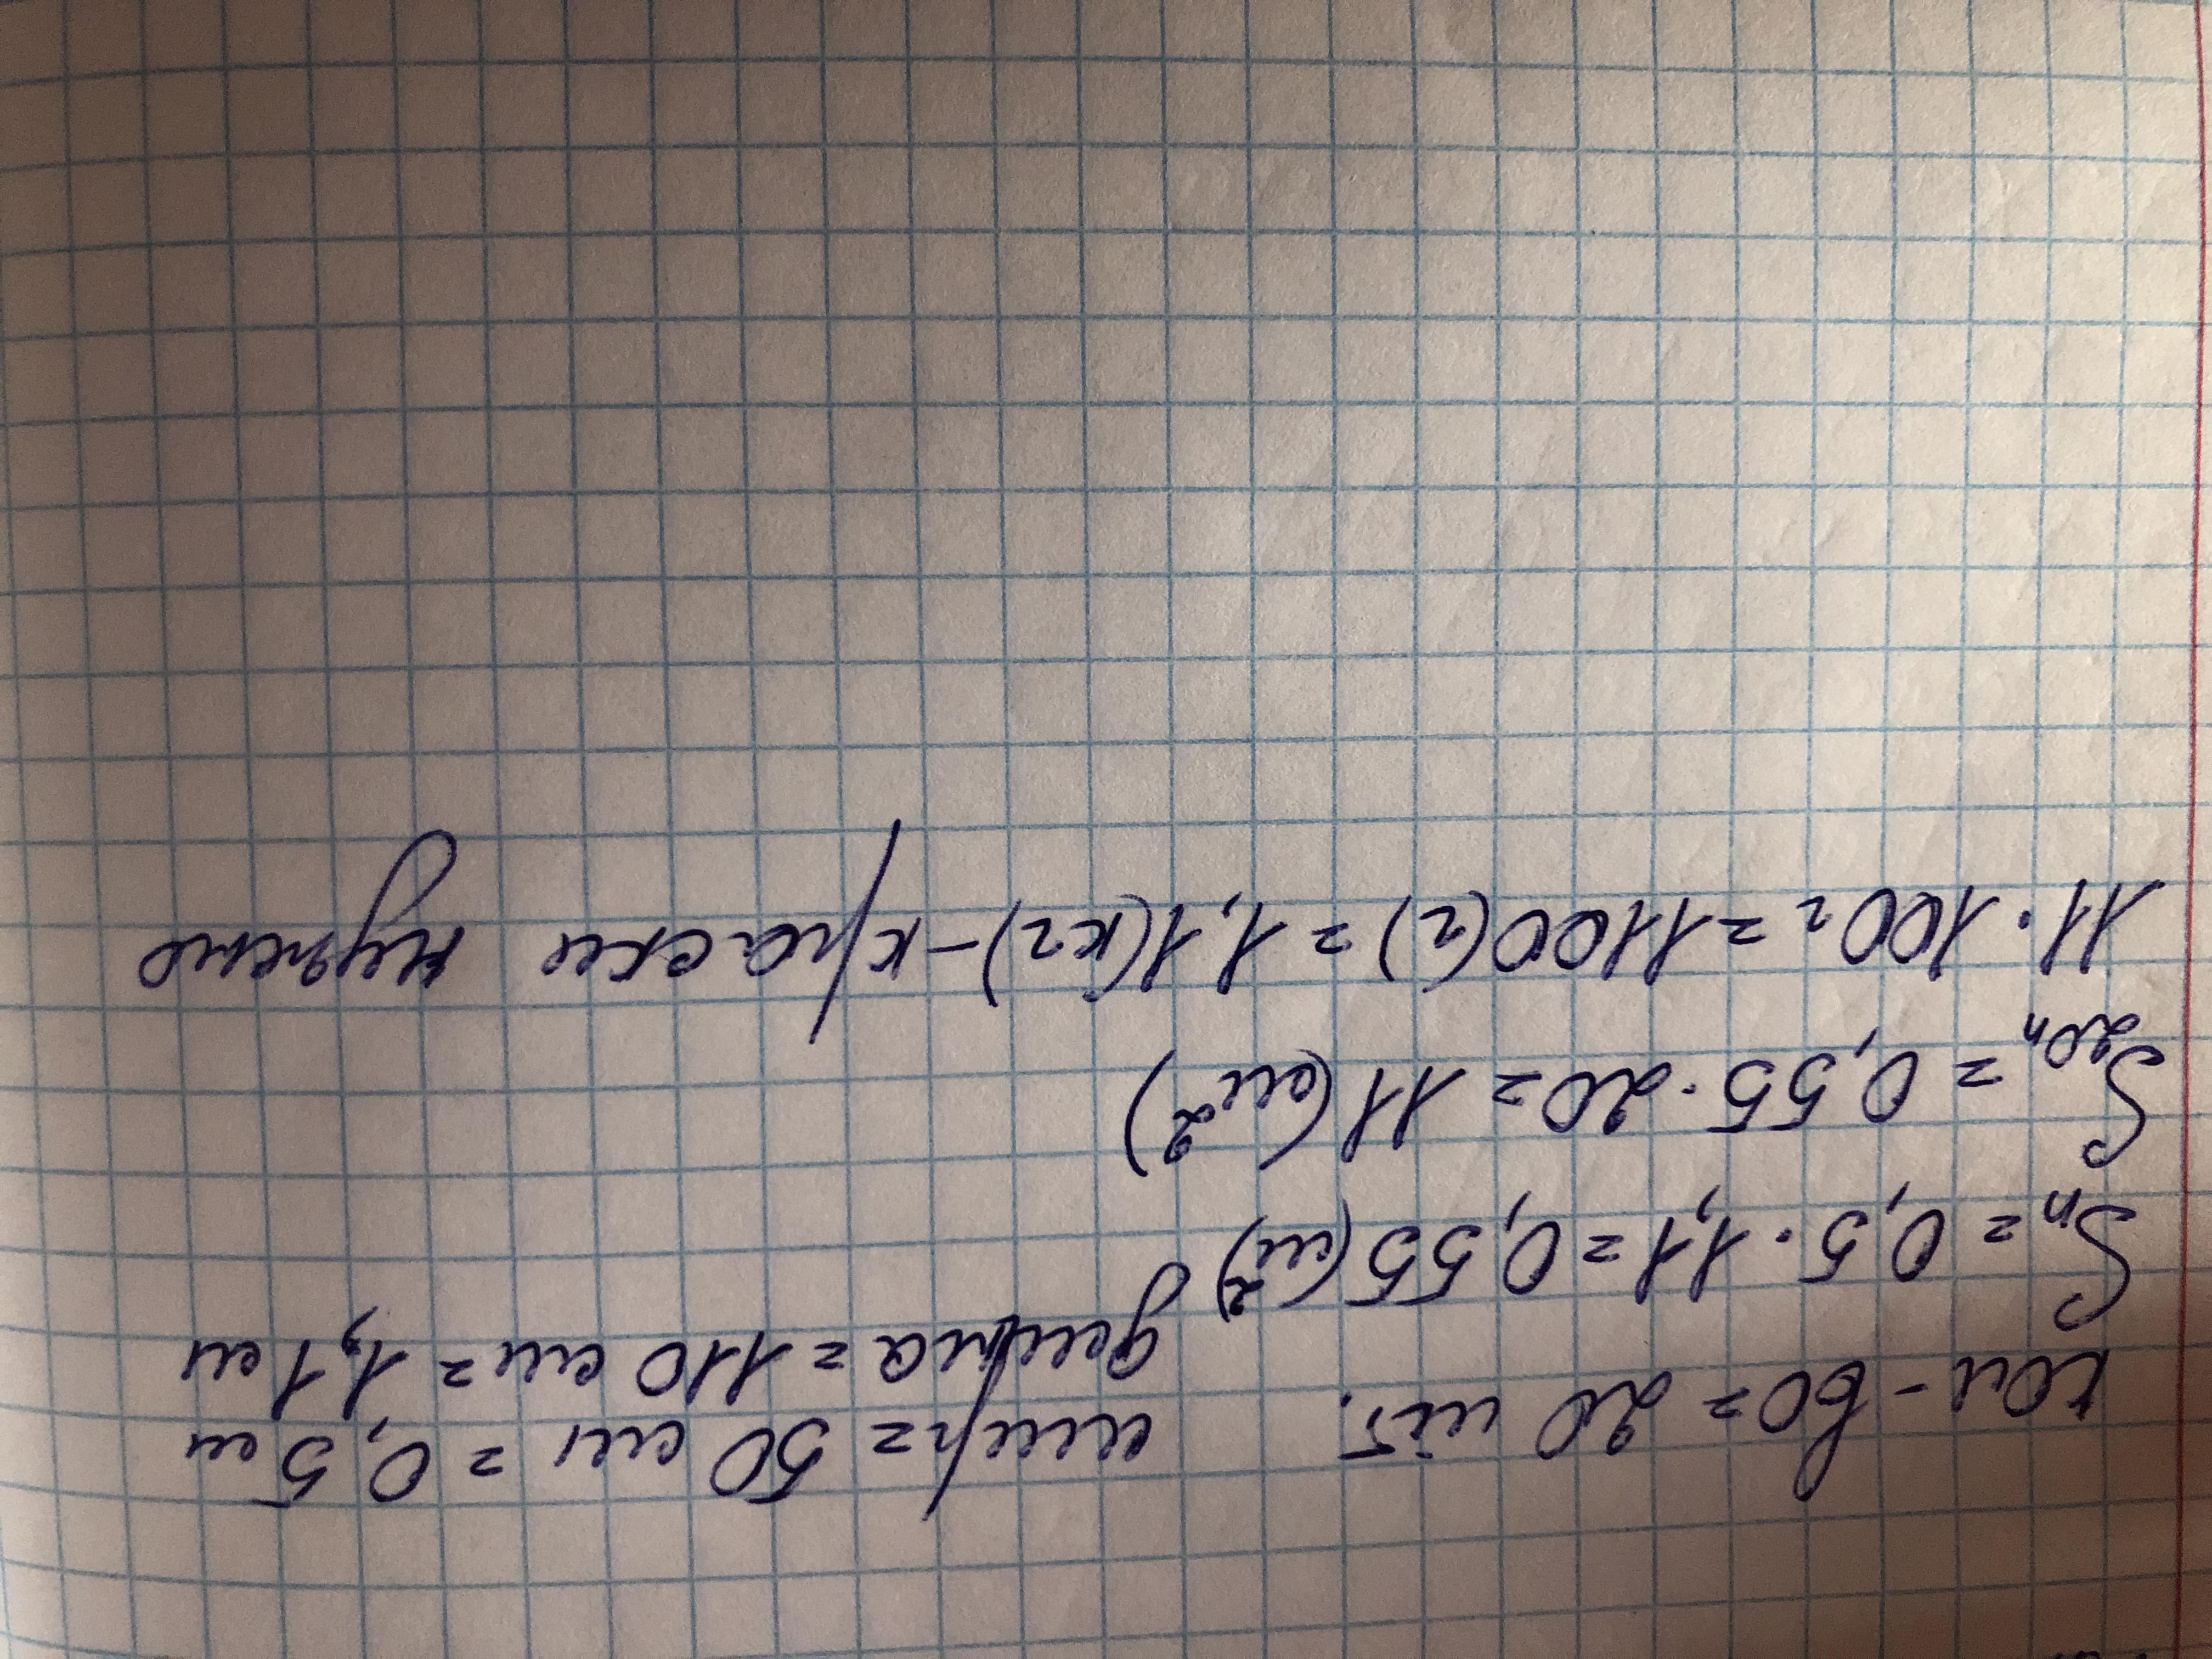 кол-во = 20 шт. шир = 50 см = 0,5 м
длина = 110 см = 1,1 м
Sп = 0,5 · 1,1 = 0,55 (м²)
S20п = 0,55 · 20 = 11 (м²)
11 · 100г = 1100 (г) = 1,1 (кг) - краски нужно